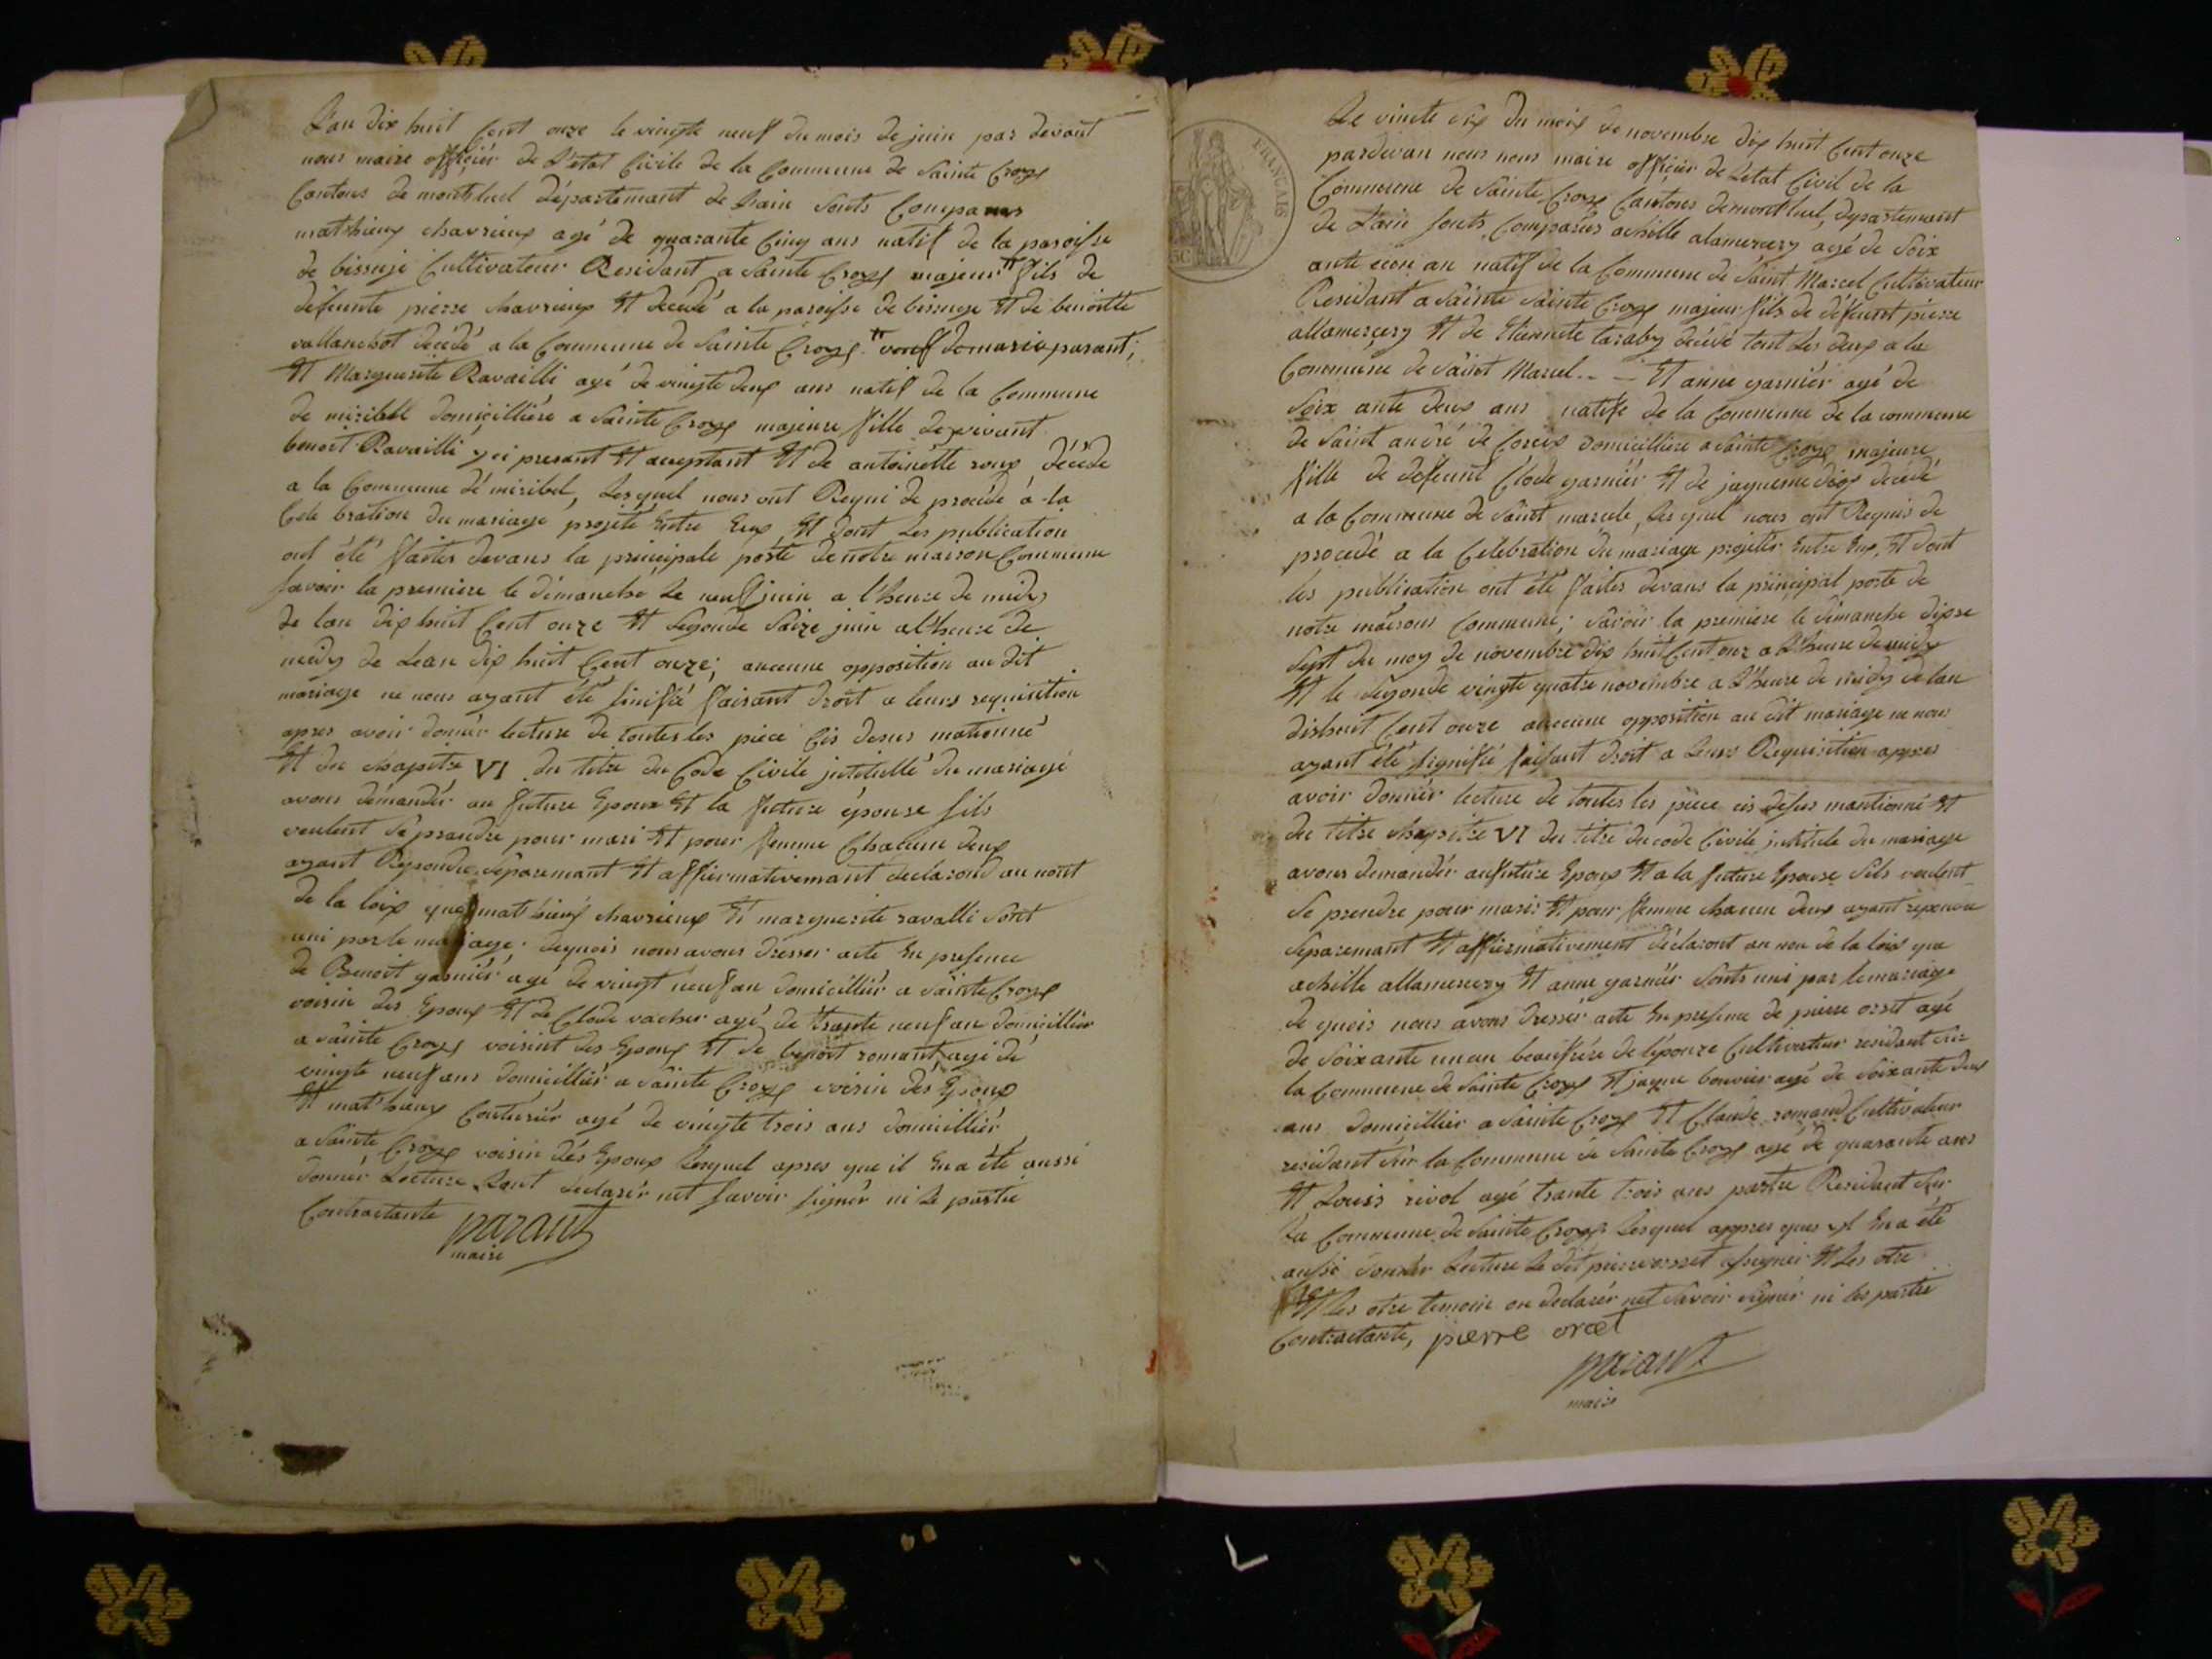 L'an dix huit Cent onze le vingte neuf du mois de juin par devant
nous maire officiér de L'état Civile de la Commune de Sainte Croye
Cantons de montluel département de Lain Sonts Comparus
matthieux chavrieux agé de quarante Cinq ans natif de la paroisse
de bissuje Cultivateur Residant a Sainte Croye majeur fils de
défeunte pierre chavrieux Et décédé a la paroisse de bissuje Et de benoitte
vallanchot décédé a la Commune de Sainte Croye veuf de marie parant;
Et Marguerite Ravailli agé de vingte deux ans natif de la Commune
de miribelle domicillière a Sainte Croye majeure fille de vivant
benoit Ravailli yci presant Et aceptant Et de antoinette roux décédé
a la Commune dé miribel, Lesquel nous ont Requi de procédé à la
Célébration du mariage projeté Entre Eux Et dont Les publication
ont été faites devans la principale porte de notre maison Commune
Savoir la première le dimanche Le neuf juin a l'heure de midy
de lan dix huit Cent onze Et Segonde Saize juin a l'heure de
midy de Léan dix huit Cent onze; aucunne opposition au dit
mariage ne nous ayant été sinifié faisant droit a leurs requisition
apres avoir donnér lecture de toutes les pièce Cis desus mationné
Et du chapitre VI du titre du Code Civile jntitullé du mariage
avons démandér au future Epoux Et la future épouse sils
veulent Se prandre pour mari Et pour femme Chacune deux
ayant Repondue séparemant Et affirmativemant declarond au nont
de la loix que matthieux chavrieux Et marguerite ravalli Sont
uni par le mariage. dequois nous avons dresser acte En presence
de Benoit garniér agé de vingt neuf an domicilliér a Sainte Croye
voisin des Epoux Et de Clode vacher agé de trante neuf an domicillier
a Sainte Croye voisint des Epoux Et de benoit romant agé de
vingte neuf ans domicilliér a Sainte Croye voisin des Epoux
Et matthieux Couturiér agé de vingte trois ans domicilliér
a Sainte Croye voisin dés Epoux Lesquel apres que il En a été aussi
donnér Lecture Dont declarér net savoir signér ni Le partie
Contractante
parant
maire
Le vincte six du mois de novembre dix huit Cent onze
pardevan nous nous maire officiér de Létat Civil de la
Commune de Sainte Croye Cantons demontluel, dypartemant
de L'ain Sonts Comparus achille alamercery agé de Soix
ante eion an natif de la Commune de Saint Marcel Cultivateur
Residant a Sainte Sainte Croye majeur fils de défeunt pierre
allamercery Et de Etiennete taraby décédé tout Les deux a la
Commune de Saint Marcel.. — Et anne garniér agé de
Soix ante deux ans natife de la Commune de la commune
de Saint andré de Corcis domicilliere a Sainte Croye majeure
fille de défeunt Clode garniér Et de jaqueme digs décédé
a la Commune de Saint marcele, Lesquel nous ont Requis de
procédé a la Célébration du mariage projetér Entre Eux, Et dont
les publication ont été faites devans la principal porte de
notre maisons Commune; Savoir la première le dimanche disse
Sept du moy de novembre dix huit Cent onz a L'heure de midy
Et le Segonde vingte quatre novembre a L'heure de midy de lan
dishuit Cent onze aucunne opposition au dit mariage ne nous
ayant été signifié faisant droit a Leurs Requisition appres
avoir donnér lecture de toutes les piece cis désus mantionné Et
du titre chapitre VI du titre du code Civile jntitule du mariage
avons demandér aufuture Epoux Et a la future Epouse Sils veulent
Se prendre pour maris Et pour femme chacun deux ayant reponcue
Séparemant Et affirmativement déclaront au nom de la lois que
achille allamercery Et anne garniér Sonts uni par lemariage
de quois nous avons dressér acte En presence de pierre orset agé
de Soixante un an beaufrére de lépouze Cultivateur residant sur
la Commune de Sainte Croye Et jaque bouvier agé de Soixante deux
ans domicillier a Sainte Croye Et Claude romand Cultivateur
residant sur la Commune de Sainte Croye agé de quarante ans
Et Louis rivol agé trante trois ans partre Residant sur
La Commune de Sainte Croye Lesquel appres que il En a été
aussi donnér Lecture Le dit pierre orset a signér Et Les otre
Et Les otre temoin on declarér net Savoir signér ni les partie
Contractante, pierre orcet
parant
maire
FRANÇAIS